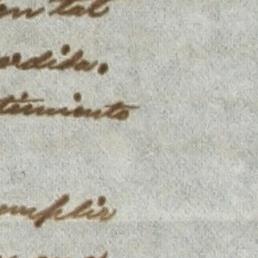 en tal
erdida.
timiento
umplir